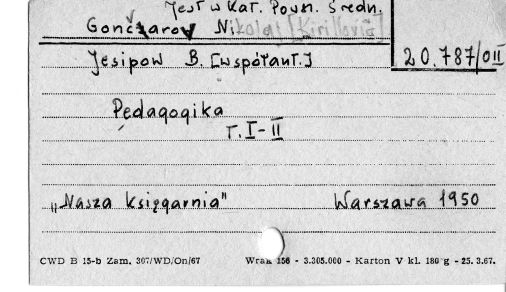 Jest w Kat. Pown. Średn.
Gončzarow Nikolaj [Kirillovič]
Jesipow B. [współaut.]
20.787/OII
Pedagogika
T. I-II
„Nasza Księgarnia" Warszawa 1950
CWD B 15-b Zam. 307/WD/On/67 Wrak 156 - 3.305.000 - Karton V kl. 180 g - 25. 3.67.